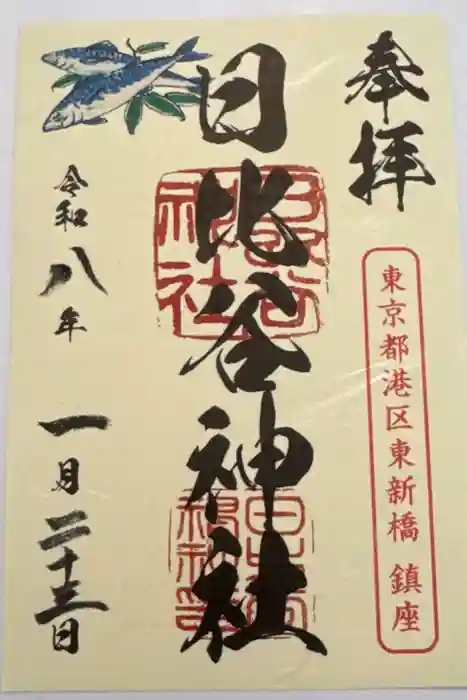 奉拝
東京都港区東新橋 鎮座
日比谷神社
日比谷神社
令和八年
一月二十三日